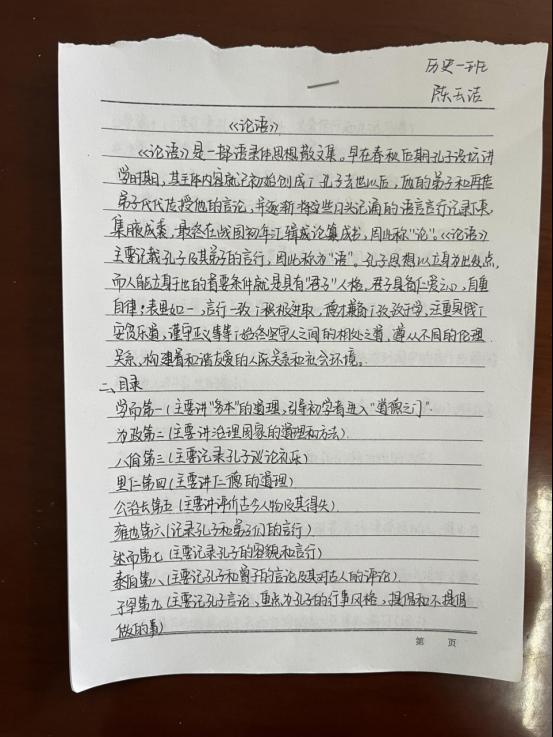 历史一班
陈云洁
《论语》
《论语》是一部语录体思想散文集。早在春秋后期孔子设坛讲
学时期,其主体内容就已初始创成;孔子去世以后,他的弟子和再传
弟子代代传授他的言论,并逐渐将这些口头记诵的语言言行记录下来,
集腋成裘,最终在战国初年汇辑成论纂成书,因此称“论”。《论语》
主要记载孔子及其弟子的言行,因此称为“语”。孔子思想以立身为出发点,
而人能立身于世的首要条件就是具有“君子”人格。君子具备仁爱之心,自重
自律;表里如一,言行一致;积极进取,德才兼备;孜孜学,注重实践;
安贫乐道,谨守正义等等;始终坚守人之间的相处之道,遵从不同的伦理
关系,构建着和谐友爱的人际关系和社会环境。
二、目录
学而第一(主要讲“务本”的道理,引导初学者进入“道德之门”.
为政第二(主要讲治理国家的道理和方法)
八佾第三(主要记录孔子议论礼乐)
里仁第四(主要讲仁德的道理)
公冶长第五(主要讲评价古今人物及其得失)
雍也第六(记录孔子和弟子们的言行)
述而第七(主要记录孔子的容貌和言行)
泰伯第八(主要记孔子和曾子的言论及其对古人的评论)
子罕第九(主要记孔子言论,重点为孔子的行事风格,提倡和不提倡
做的事)
第 页